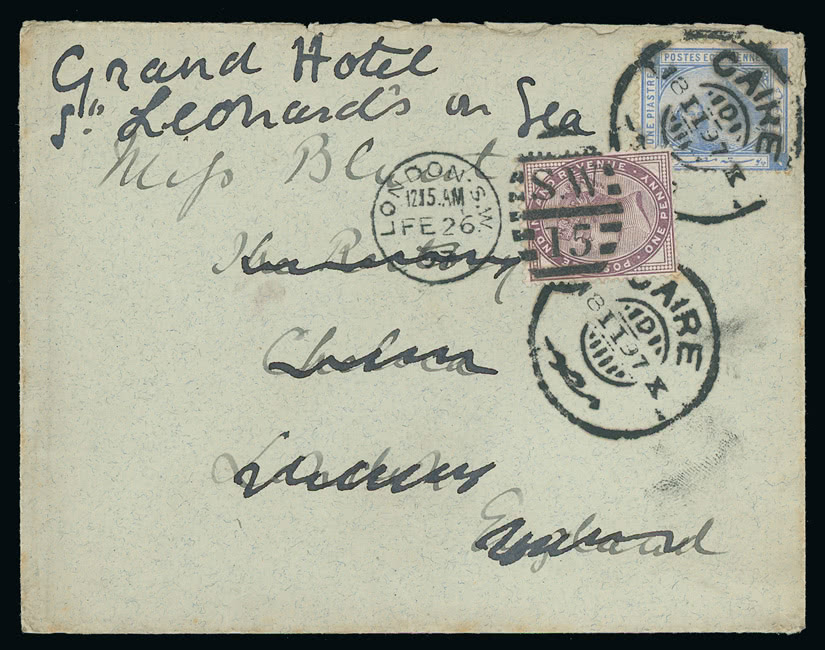 Grand Hotel
St. Leonards on Sea
POSTES EG ENNE
ONE PIASTRE
CAIRE
18 II 97 X
Miss Blunt
LONDON.S.W.
12 15.AM
FE 26
S.W.
15
POSTAGE AND INLAND REVENUE
ONE PENNY
The Rectory
Chelsea
CAIRE
18 II 97 X
London
England